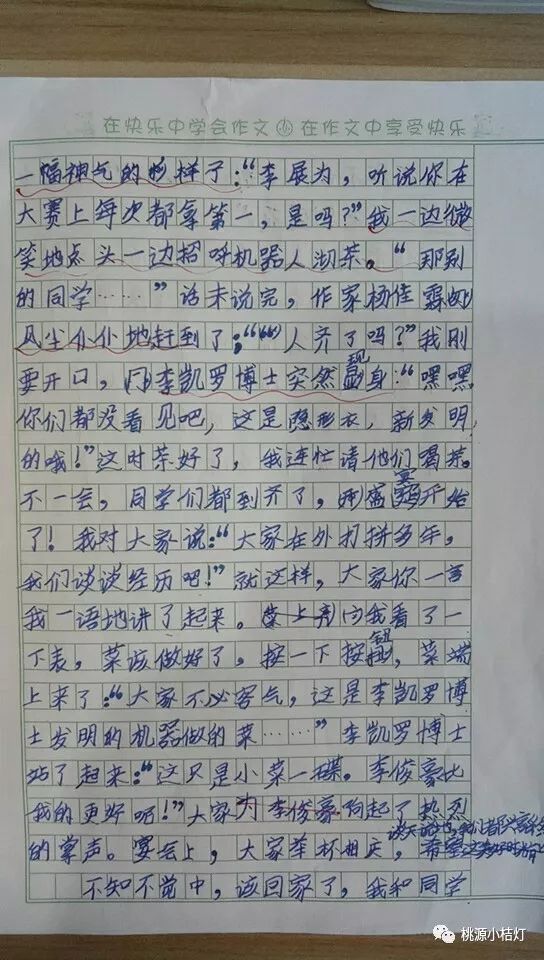 在快乐中学会作文 在作文中享受快乐
一幅神气的样子:“李展为,听说你在
大赛上每次都拿第一,是吗?”我一边微
笑地点头一边招呼机器人沏茶。“那别
的同学……”话未说完,作家杨佳霖
风尘仆仆地赶到了:“人齐了吗?”我刚
要开口,李凯罗博士突然现身:“嘿嘿,
你们都没看见吧,这是隐形衣,新发明
的哦!”这时茶好了,我连忙请他们喝茶。
不一会,同学们都到齐了,盛宴开始
了!我对大家说:“大家在外打拼多年,
我们谈谈经历吧!”就这样,大家你一言
我一语地讲了起来。我看了一
下表,菜该做好了,按一下按钮,菜端
上来了:“大家不必客气,这是李凯罗博
士发明的机器做的菜……”李凯罗博士
站了起来:“这只是小菜一碟。李俊豪比
我的更好呢!”大家为李俊豪响起了热烈
谈天说地,我们都兴高采
的掌声。宴会上,大家举杯相庆,希望
不知不觉中,该回家了,我和同学
桃源小桔灯